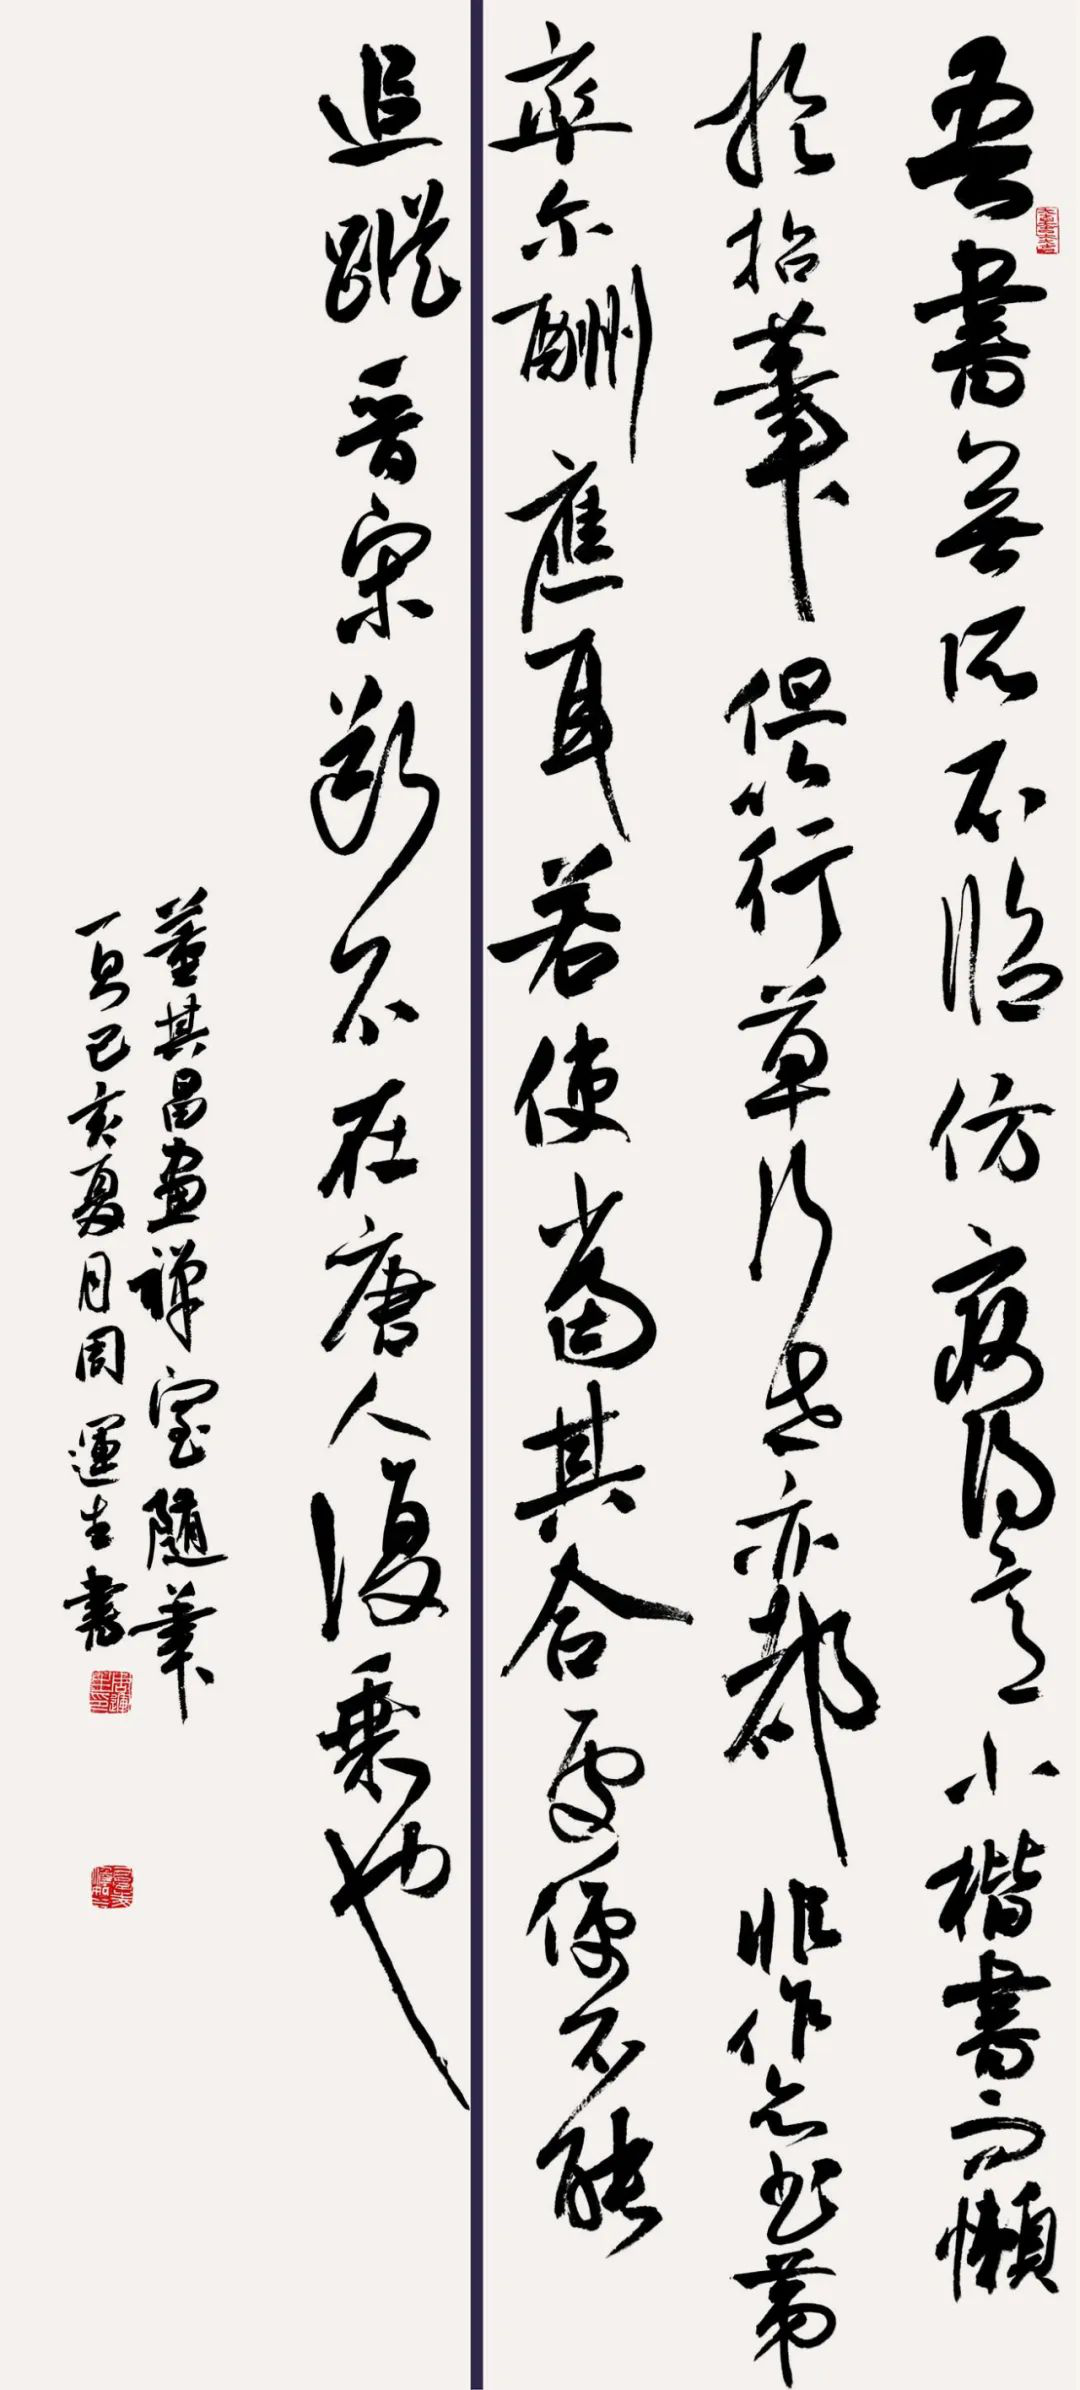 吾書無所不臨仿㝡得意小楷書而懶
於拈筆但以行草行世亦都非作意书第
率尔酬應耳若使當其合處便不能
追蹤晉宋断不在唐人後乘也
董其昌畫禪室隨筆
一則己亥夏月周運生書
周運生印